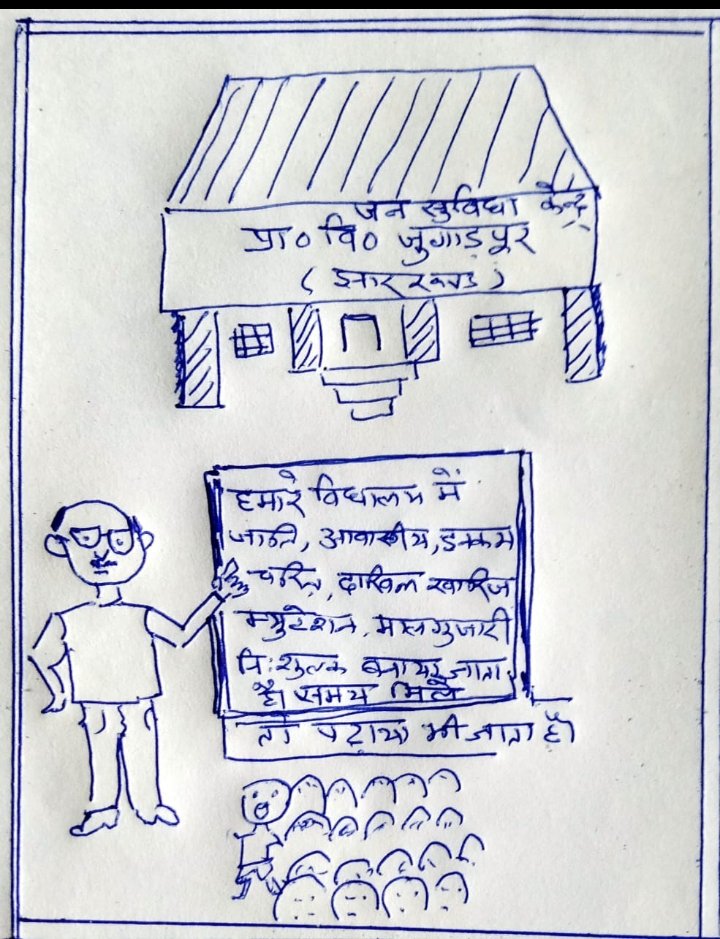 जन सुविधा केन्द्र
प्रा० वि० जुगाड़पूर
(झारखण्ड)
हमारे विद्यालय में
जाति, आवासीय, इनकम
चरित्र, दाखिल खारिज
म्युटेशन, मालगुजारी
नि:शुल्क बनाया जाता
है। समय मिले
तो पढ़ाया भी जाता है।